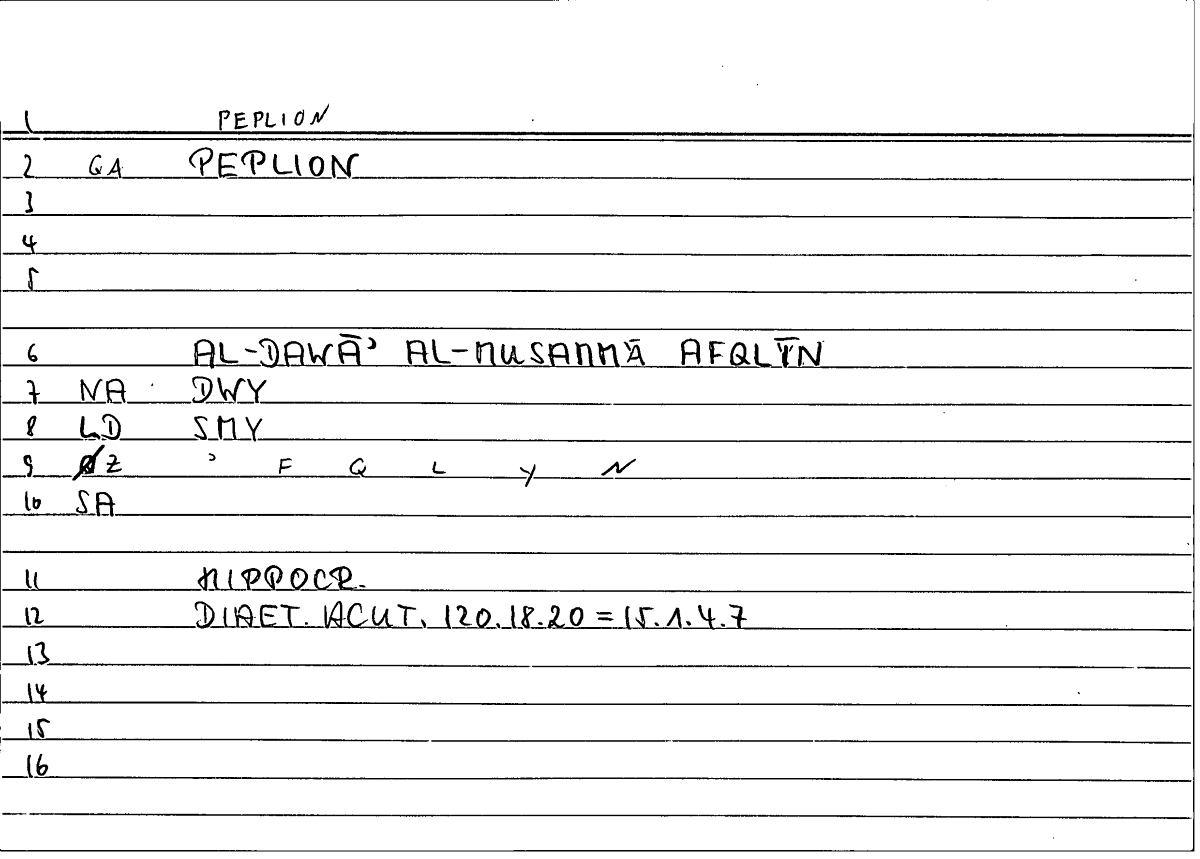 1 PEPLION
2 GA PEPLION
3
4
5
6 AL-DAWĀʾ AL-MUSAMMĀ AFQLYN
7 NA DWY
8 LD SMY
9 Z ʾ F Q L Y N
10 SA
11 HIPPOCR.
12 DIAET. ACUT. 120.18.20 = 15.1.4.7
13
14
15
16